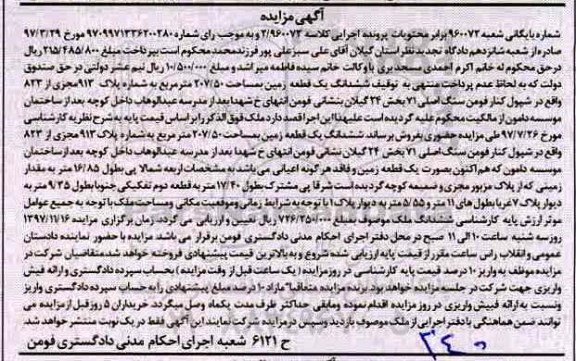 آگهی مزایده
شماره بایگانی شعبه ۹۶۰۰۷۲ برابر محتویات پرونده اجرایی کلاسه ۲/۹۶۰۰۷۲ و به موجب رای شماره ۹۷۰۹۹۷۱۳۳۶۲۰۰۲۸۰ مورخ ۹۷/۳/۲۹
صادره از شعبه شانزدهم دادگاه تجدید نظر استان گیلان آقای علی سبز علی پور فرزند محمد محکوم است بپرداخت مبلغ ۲۱۵/۴۸۵/۸۰۰ ریال
در حق محکوم له خانم اکرم احمدی مسجدبری با وکالت خانم سیده فاطمه میر اشه و مبلغ ۱۰/۵۰۰/۰۰۰ ریال نیم عشر دولتی در حق صندوق
دولت که به لحاظ عدم پرداخت منتهی به توقیف ششدانگ یک قطعه زمین بمساحت ۲۰۷/۵۰ مترمربع به شماره پلاک ۹۱۳ مجزی از ۸۲۳
واقع در شپول کنار فومن سنگ اصلی ۷۱ بخش ۲۴ گیلان بنشانی فومن انتهای خ شهدا بعد از مدرسه عبدالوهاب داخل کوچه بعد از ساختمان
موسسه دامون از مالکیت محکوم علیه گردیده است علیهذا این اجرا قصد دارد ملک فوق الذکر را بر اساس قیمت پایه به شرح نظریه کارشناسی
مورخ ۹۷/۷/۲۶ طی مزایده حضوری بفروش برساند ششدانگ یک قطعه زمین بمساحت ۲۰۷/۵۰ مترمربع به شماره پلاک ۹۱۳ مجزی از ۸۲۳
واقع در شپول کنار فومن سنگ اصلی ۷۱ بخش ۲۴ گیلان نشانی فومن انتهای خ شهدا بعد از مدرسه عبدالوهاب داخل کوچه بعد از ساختمان
موسسه دامون که هم اکنون بصورت یک قطعه زمین و فاقد هر گونه اعیانی می باشد به مشخصات اربعه شمالا پی بطول ۱۶/۸۵ متر به مقدار
زمینی که از پلاک مزبور مجزی و ضمیمه کوچه گردیده است شرقا پی مشترک بطول ۱۷/۴۰ متر به قطعه دوم تفکیکی جنوبا بطول ۹/۲۵ متر به
دیوار پلاک ۷ غربا بطول های ۱۱ متر و ۵/۵۵ متر به دیوار پلاک ۱ با توجه به شرایط زمانی و موقعیت مکانی و مساحت ملک با توجه به جمیع عوامل
موثر ارزش پایه کارشناسی ششدانگ ملک موصوف بمبلغ ۷۲۶/۲۵۰/۰۰۰ ریال تعیین و ارزیابی می گردد زمان برگزاری مزایده ۱۳۹۷/۱۱/۱۶
روز سه شنبه ساعت ۱۰ الی ۱۱ صبح در محل دفتر اجرای احکام مدنی دادگستری فومن برقرار می باشد مزایده با حضور نماینده دادستان
عمومی و انقلاب راس ساعت مقرر از قیمت پایه ارزیابی شده شروع و به بالاترین قیمت پیشنهادی فروخته خواهد شد. متقاضیان شرکت در
مزایده موظف به واریز ۱۰ درصد قیمت پایه کارشناسی در روز مزایده ( یک ساعت قبل از وقت مزایده ) بحساب سپرده دادگستری و ارائه فیش
واریزی جهت شرکت در جلسه مزایده خواهد بود برنده مزایده متعاقبا" مازاد ۱۰ درصد مبلغ پیشنهادی را به حساب سپرده دادگستری واریز
ونسبت به ارائه فیش واریزی در روز مزایده اقدام نموده و مابقی حداکثر ظرف مدت یکماه وصل میگردد. خریداران ۵ روز قبل از مزایده می
توانند ضمن هماهنگی با دفتر اجرایی از ملک موصوف بازدید و سپس در مزایده شرکت نمایند این آگهی فقط در یک نوبت منتشر خواهد شد.
ح ۶۱۲۱ شعبه اجرای احکام مدنی دادگستری فومن
۳۴۰